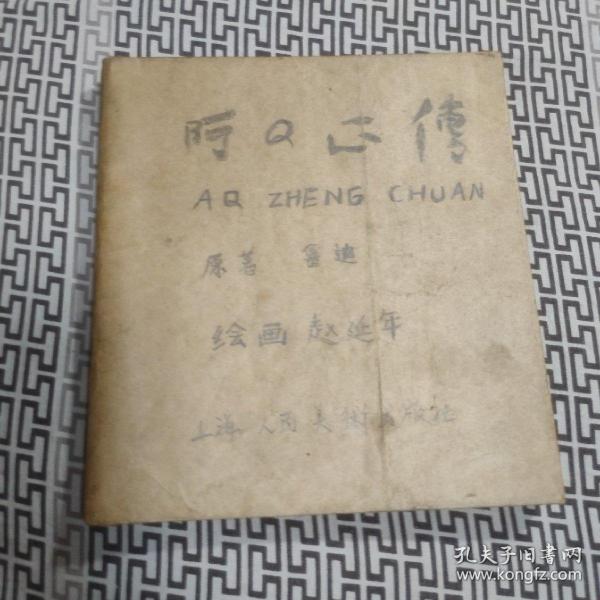 阿Q正傳
AQ ZHENG CHUAN
原著 鲁迅
绘画 赵延年
上海人民美術出版社
孔夫子旧书网
www.kongfz.com